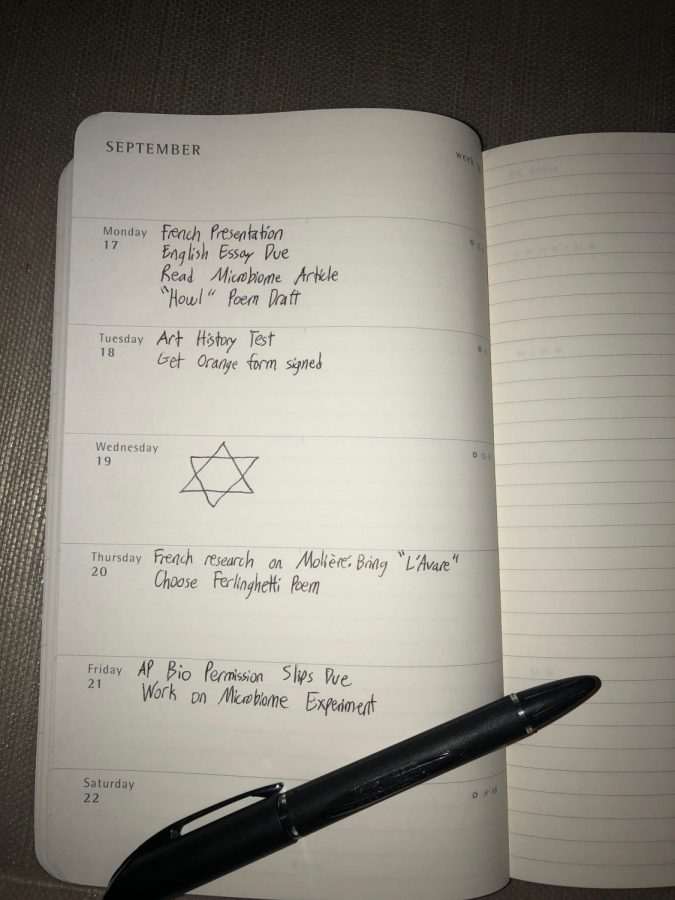 SEPTEMBER
week
Monday
17
French Presentation
English Essay Due
Read Microbiome Article
"Howl" Poem Draft
Tuesday
18
Art History Test
Get Orange form signed
Wednesday
19
Thursday
20
French research on Molière. Bring "L'Avare"
Choose Ferlinghetti Poem
Friday
21
AP Bio Permission Slips Due
Work on Microbiome Experiment
Saturday
22